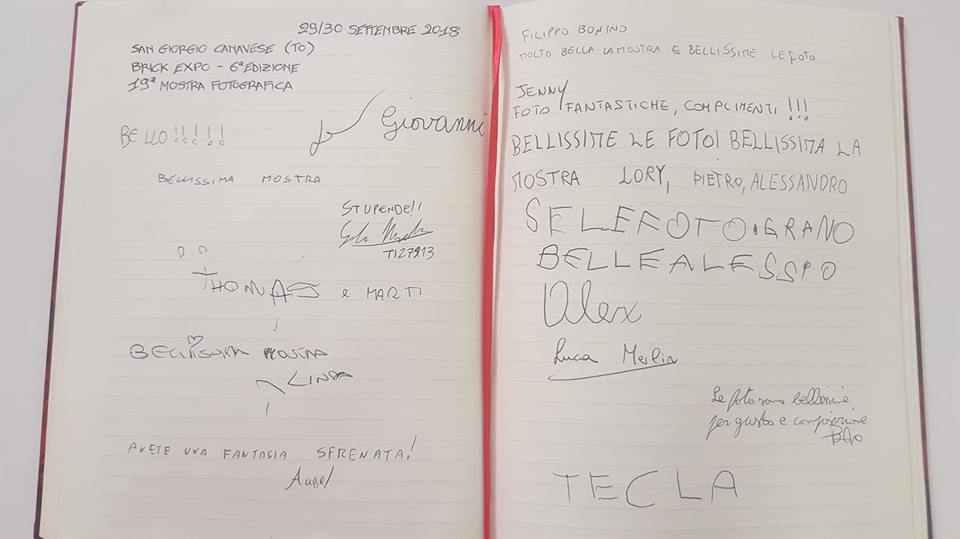 29/30 SETTEMBRE 2018
SAN GIORGIO CANAVESE (TO)
BRICK EXPO - 6ª EDIZIONE
19ª MOSTRA FOTOGRAFICA
Giovanni
BELLO!!!!!
BELLISSIMA MOSTRA
STUPENDE!!
TI27913
THOMAS e MARTI
BELLISSIMA MOSTRA
LINDA
AVETE UNA FANTASIA SFRENATA!
FILIPPO BONINO
MOLTO BELLA LA MOSTRA E BELLISSIME LE FOTO
JENNY
FOTO FANTASTICHE, COMPLIMENTI!!!
BELLISSIME LE FOTO! BELLISSIMA LA
MOSTRA LORY, PIETRO, ALESSANDRO
SELEFOTO
BELLEALESSPO
Alex
Luca Merlin
Le foto sono bellissime
per gusto e composizione
TECLA